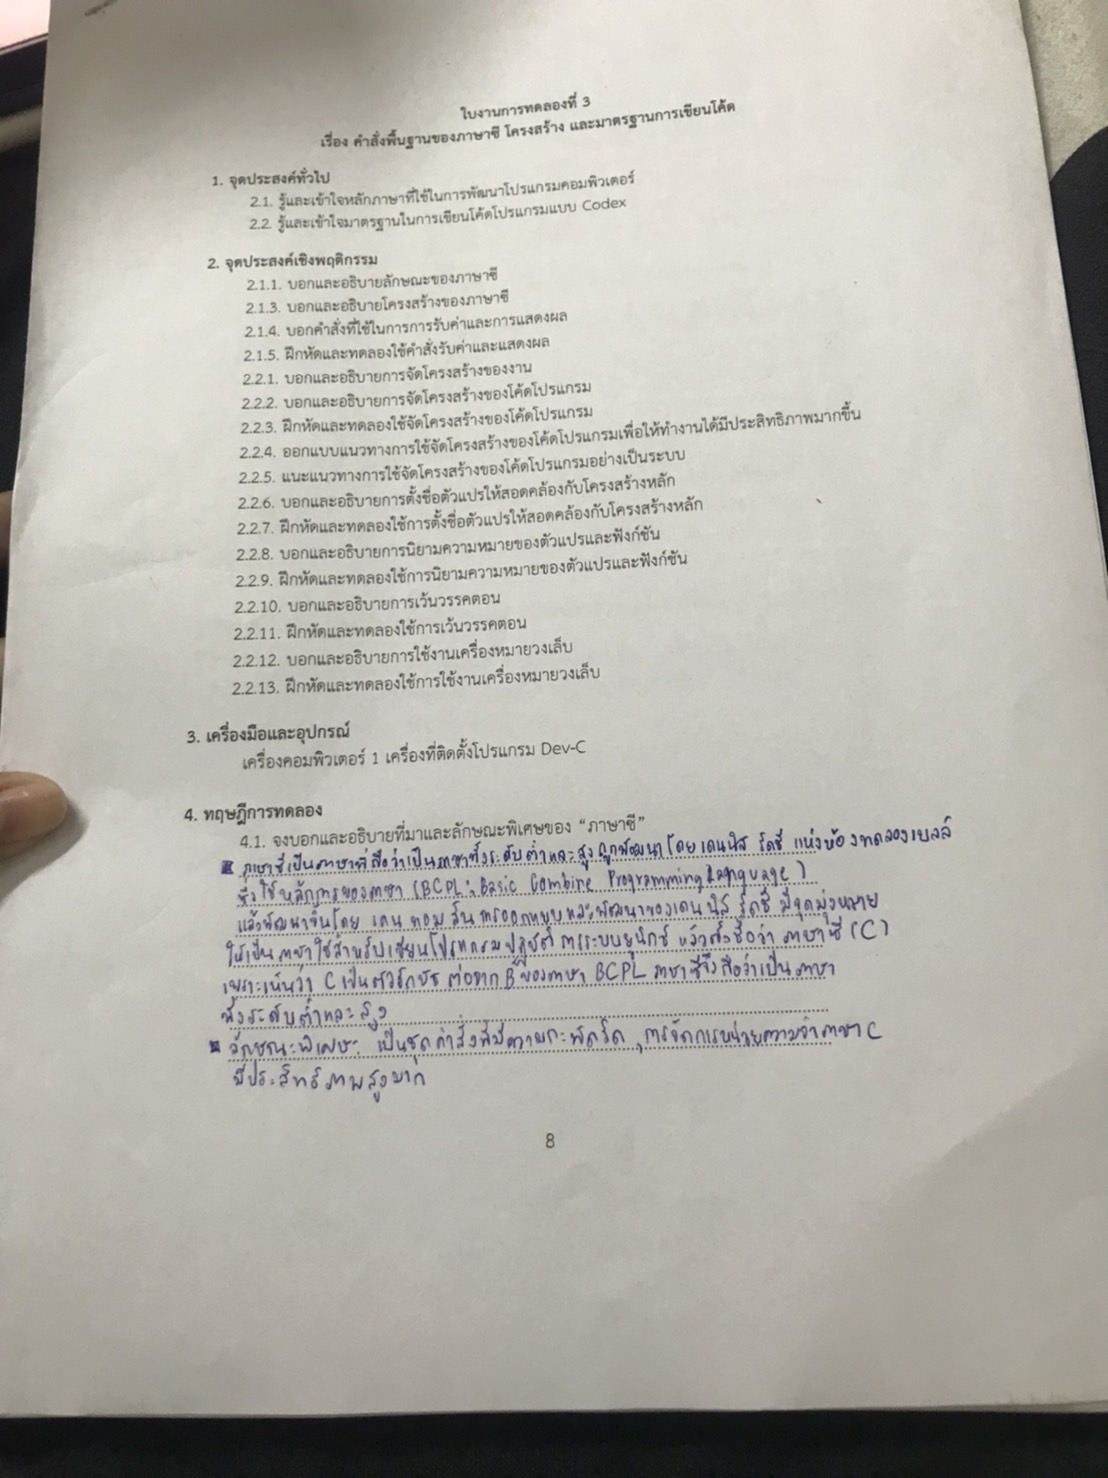 ใบงานการทดลองที่ 3
เรื่อง คำสั่งพื้นฐานของภาษาซี โครงสร้าง และมาตรฐานการเขียนโค้ด
1. จุดประสงค์ทั่วไป
2.1. รู้และเข้าใจหลักภาษาที่ใช้ในการพัฒนาโปรแกรมคอมพิวเตอร์
2.2. รู้และเข้าใจมาตรฐานในการเขียนโค้ดโปรแกรมแบบ Codex
2. จุดประสงค์เชิงพฤติกรรม
2.1.1. บอกและอธิบายลักษณะของภาษาซี
2.1.3. บอกและอธิบายโครงสร้างของภาษาซี
2.1.4. บอกคำสั่งที่ใช้ในการการรับค่าและการแสดงผล
2.1.5. ฝึกหัดและทดลองใช้คำสั่งรับค่าและแสดงผล
2.2.1. บอกและอธิบายการจัดโครงสร้างของงาน
2.2.2. บอกและอธิบายการจัดโครงสร้างของโค้ดโปรแกรม
2.2.3. ฝึกหัดและทดลองใช้จัดโครงสร้างของโค้ดโปรแกรม
2.2.4. ออกแบบแนวทางการใช้จัดโครงสร้างของโค้ดโปรแกรมเพื่อให้ทำงานได้มีประสิทธิภาพมากขึ้น
2.2.5. แนะแนวทางการใช้จัดโครงสร้างของโค้ดโปรแกรมอย่างเป็นระบบ
2.2.6. บอกและอธิบายการตั้งชื่อตัวแปรให้สอดคล้องกับโครงสร้างหลัก
2.2.7. ฝึกหัดและทดลองใช้การตั้งชื่อตัวแปรให้สอดคล้องกับโครงสร้างหลัก
2.2.8. บอกและอธิบายการนิยามความหมายของตัวแปรและฟังก์ชัน
2.2.9. ฝึกหัดและทดลองใช้การนิยามความหมายของตัวแปรและฟังก์ชัน
2.2.10. บอกและอธิบายการเว้นวรรคตอน
2.2.11. ฝึกหัดและทดลองใช้การเว้นวรรคตอน
2.2.12. บอกและอธิบายการใช้งานเครื่องหมายวงเล็บ
2.2.13. ฝึกหัดและทดลองใช้การใช้งานเครื่องหมายวงเล็บ
3. เครื่องมือและอุปกรณ์
เครื่องคอมพิวเตอร์ 1 เครื่องที่ติดตั้งโปรแกรม Dev-C
4. ทฤษฎีการทดลอง
4.1. จงบอกและอธิบายที่มาและลักษณะพิเศษของ "ภาษาซี"
ภาษาซีเป็นภาษาที่ถือว่าเป็นภาษาทั้งระดับต่ำและสูง ถูกพัฒนาโดย เดนนิส ริตชี แห่งห้องทดลองเบลล์
ซึ่งใช้หลักการของภาษา (BCPL : Basic Combine Programming Language)
แล้วพัฒนาขึ้นโดย เคน ทอมสัน การออกแบบและพัฒนาของเดนนิส ริตชี มีจุดมุ่งหมาย
ให้เป็นภาษาใช้สำหรับเขียนโปรแกรมปฏิบัติการระบบยูนิกซ์ แล้วตั้งชื่อว่า ภาษาซี (C)
เพราะเห็นว่า C เป็นตัวอักษร ต่อจาก B ของภาษา BCPL ภาษาซีจึงถือว่าเป็นภาษา
ทั้งระดับต่ำและสูง
ลักษณะพิเศษ: เป็นชุดคำสั่งที่มีความกะทัดรัด, การจัดการหน่วยความจำภาษา C
มีประสิทธิภาพสูงมาก
8